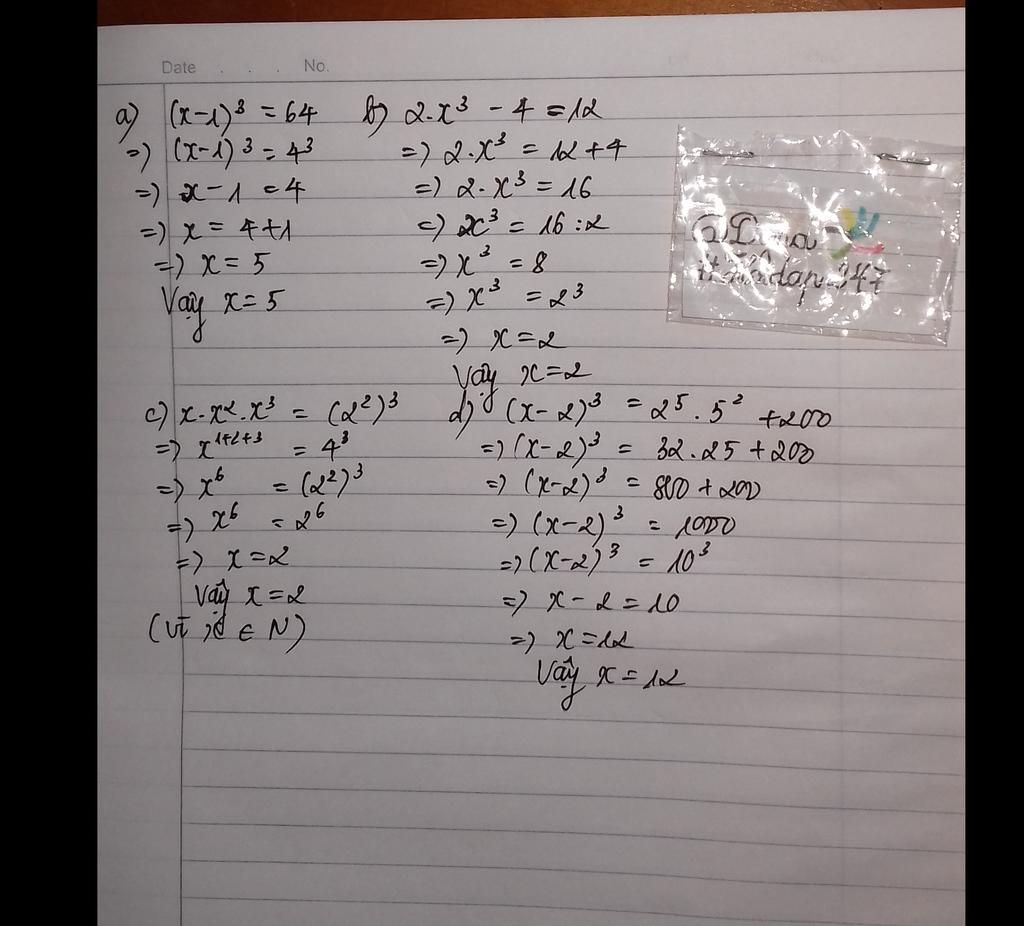 Date . . . No.
a) (x-1)³ = 64
=) (x-1)³ = 4³
=) x - 1 = 4
=) x = 4+1
=) x = 5
Vậy x = 5
b) 2.x³ - 4 = 12
=) 2.x³ = 12 + 4
=) 2.x³ = 16
=) x³ = 16 : 2
=) x³ = 8
=) x³ = 2³
=) x = 2
Vậy x = 2
c) x.x².x³ = (2²)³
=) x¹⁺²⁺³ = 4³
=) x⁶ = (2²)³
=) x⁶ = 2⁶
=) x = 2
Vậy x = 2
(vì x ∈ N)
d) (x-2)³ = 2⁵.5² + 200
=) (x-2)³ = 32.25 + 200
=) (x-2)³ = 800 + 200
=) (x-2)³ = 1000
=) (x-2)³ = 10³
=) x - 2 = 10
=) x = 12
Vậy x = 12